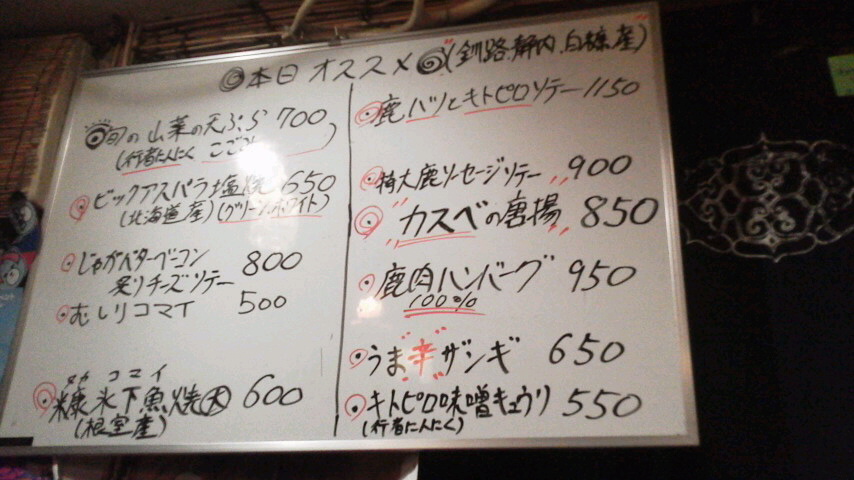 本日オススメ (釧路、静内、白糠、産)
旬の山菜の天ぷら 700
(行者にんにく こごみ)
ビックアスパラ塩焼 650
(北海道産)(グリーン、ホワイト)
じゃがバターベーコン
炙りチーズソテー 800
むしりコマイ 500
ヌカ コマイ
糠氷下魚焼大 600
(根室産)
鹿ハツとキトピロソテー 1150
特大鹿ソーセージソテー 900
"カスベの唐揚" 850
鹿肉ハンバーグ 950
100%
うま辛ザンギ 650
キトピロ味噌キュウリ 550
(行者にんにく)